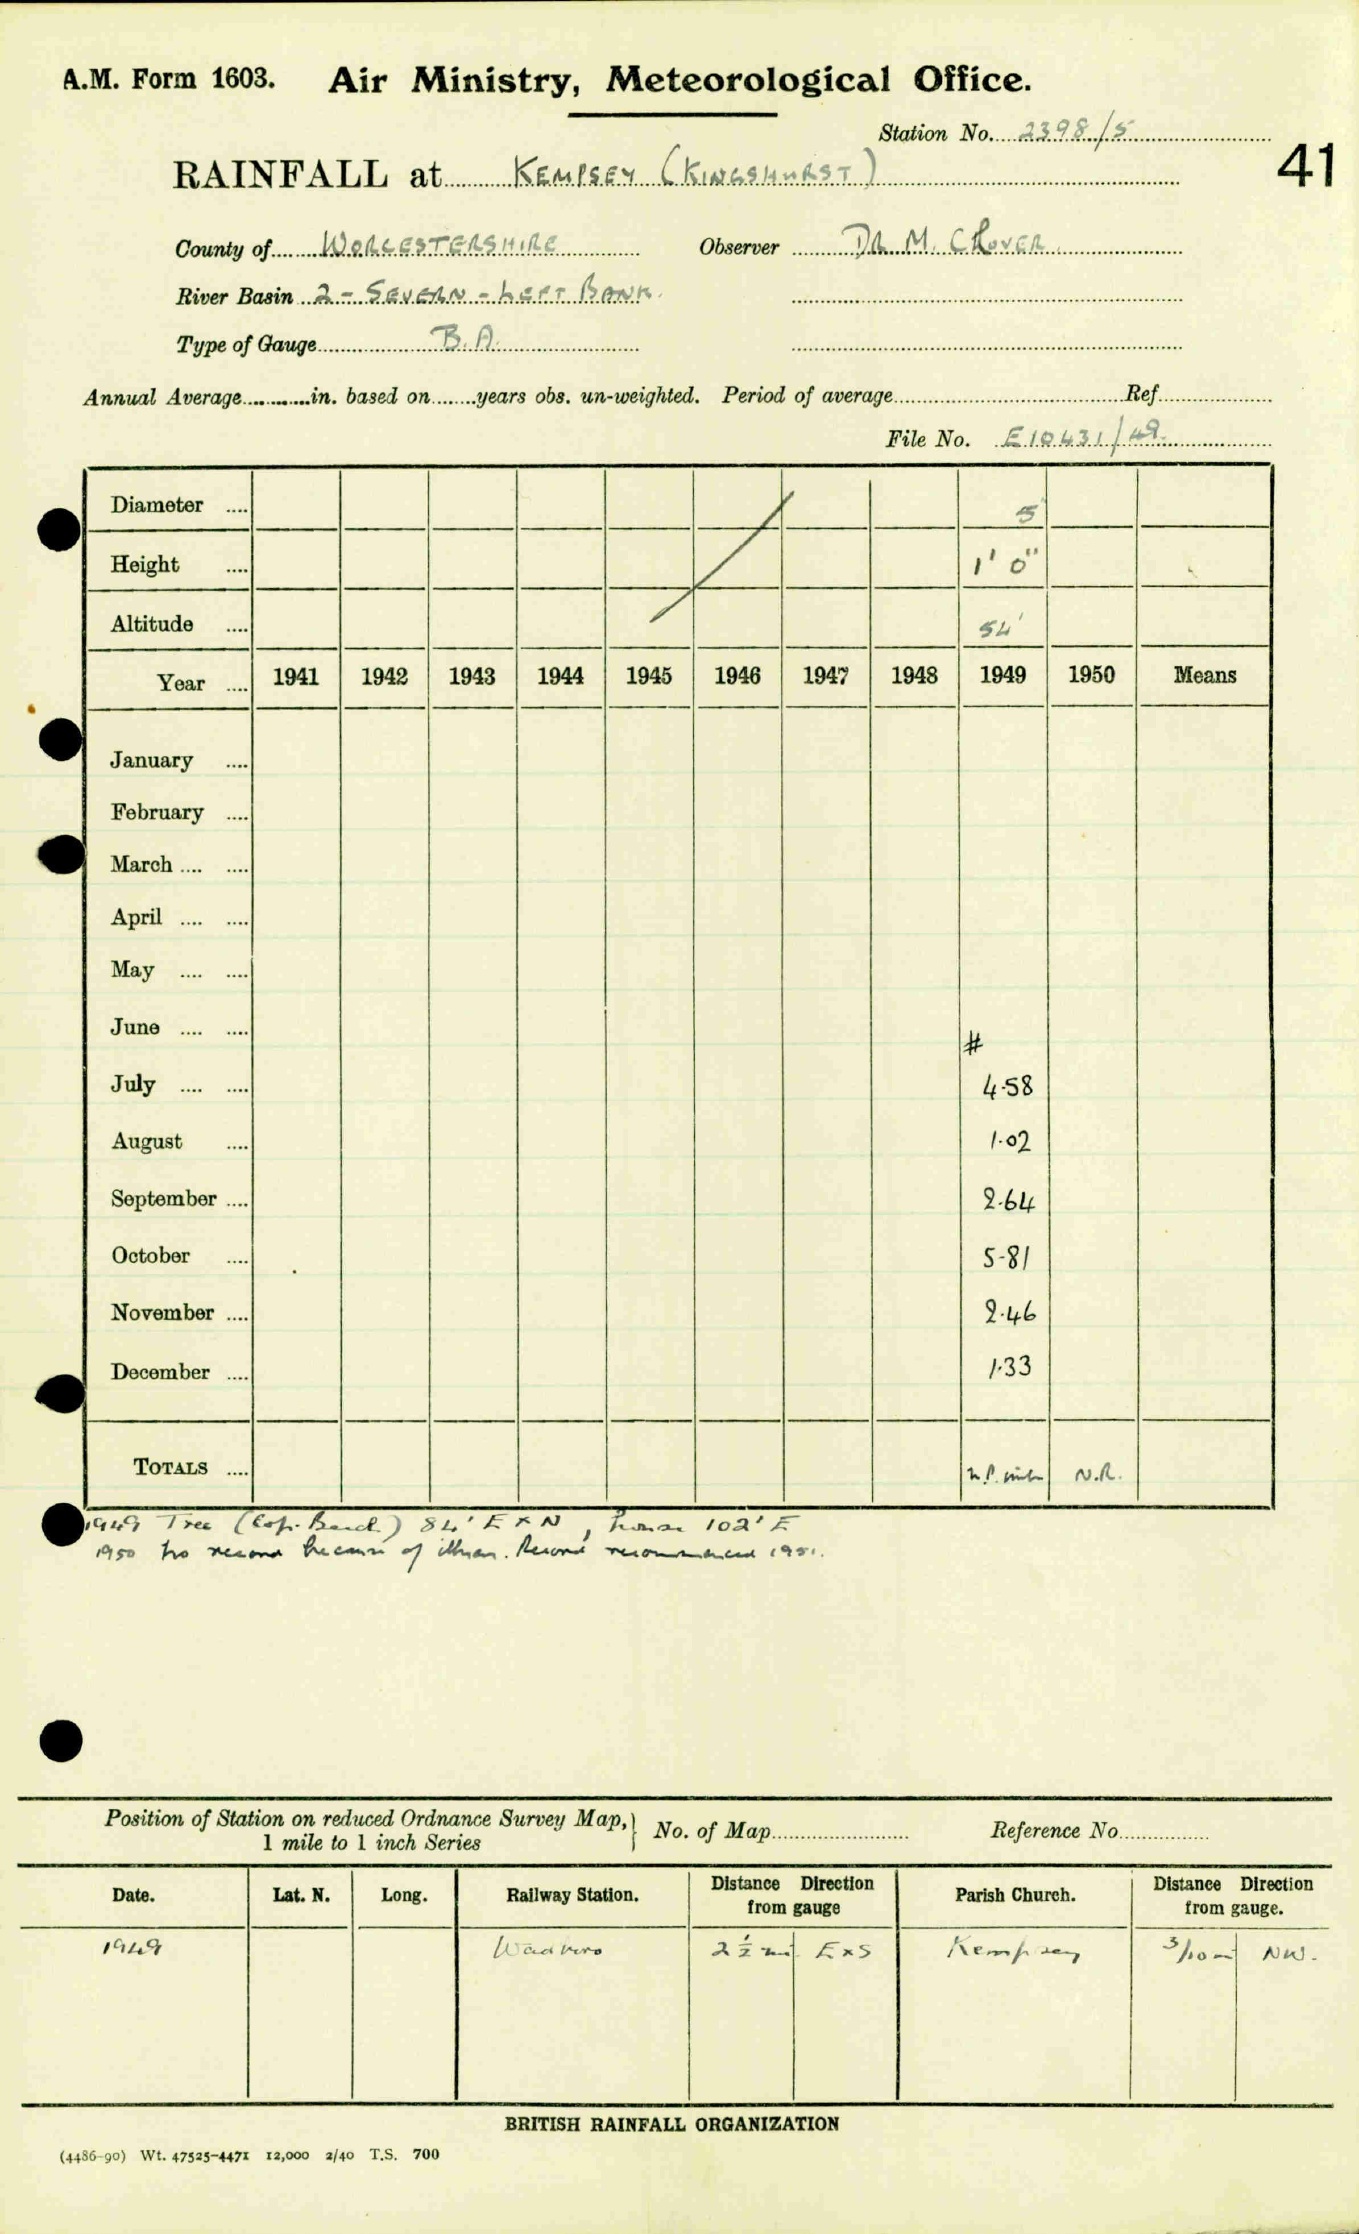 A.M. Form 1603. Air Ministry, Meteorological Office.
Station No. 2398/5
41
RAINFALL at KEMPSEY (KINGSHURST)
County of WORCESTERSHIRE Observer DR M. CLOVER.
River Basin 2 - SEVERN - LEFT BANK.
Type of Gauge B.A.
Annual Average in. based on years obs. un-weighted. Period of average Ref
File No. E10431/49.
Diameter 5
Height 1' 0"
Altitude 54'
Year 1941 1942 1943 1944 1945 1946 1947 1948 1949 1950 Means
January
February
March
April
May
June
#
July 4.58
August 1.02
September 2.64
October 5.81
November 2.46
December 1.33
TOTALS N.R.
1949 Tree (Cop. Beech) 84' E x N, house 102' E
1950 No record because of illness. Record recommenced 1951.
Position of Station on reduced Ordnance Survey Map,} No. of Map Reference No
1 mile to 1 inch Series
Date. Lat. N. Long. Railway Station. Distance Direction from gauge Parish Church. Distance Direction from gauge.
1949 2½ mi E x S Kempsey 3/10 m NW.
BRITISH RAINFALL ORGANIZATION
(4486-90) Wt. 47525-4471 12,000 2/40 T.S. 700